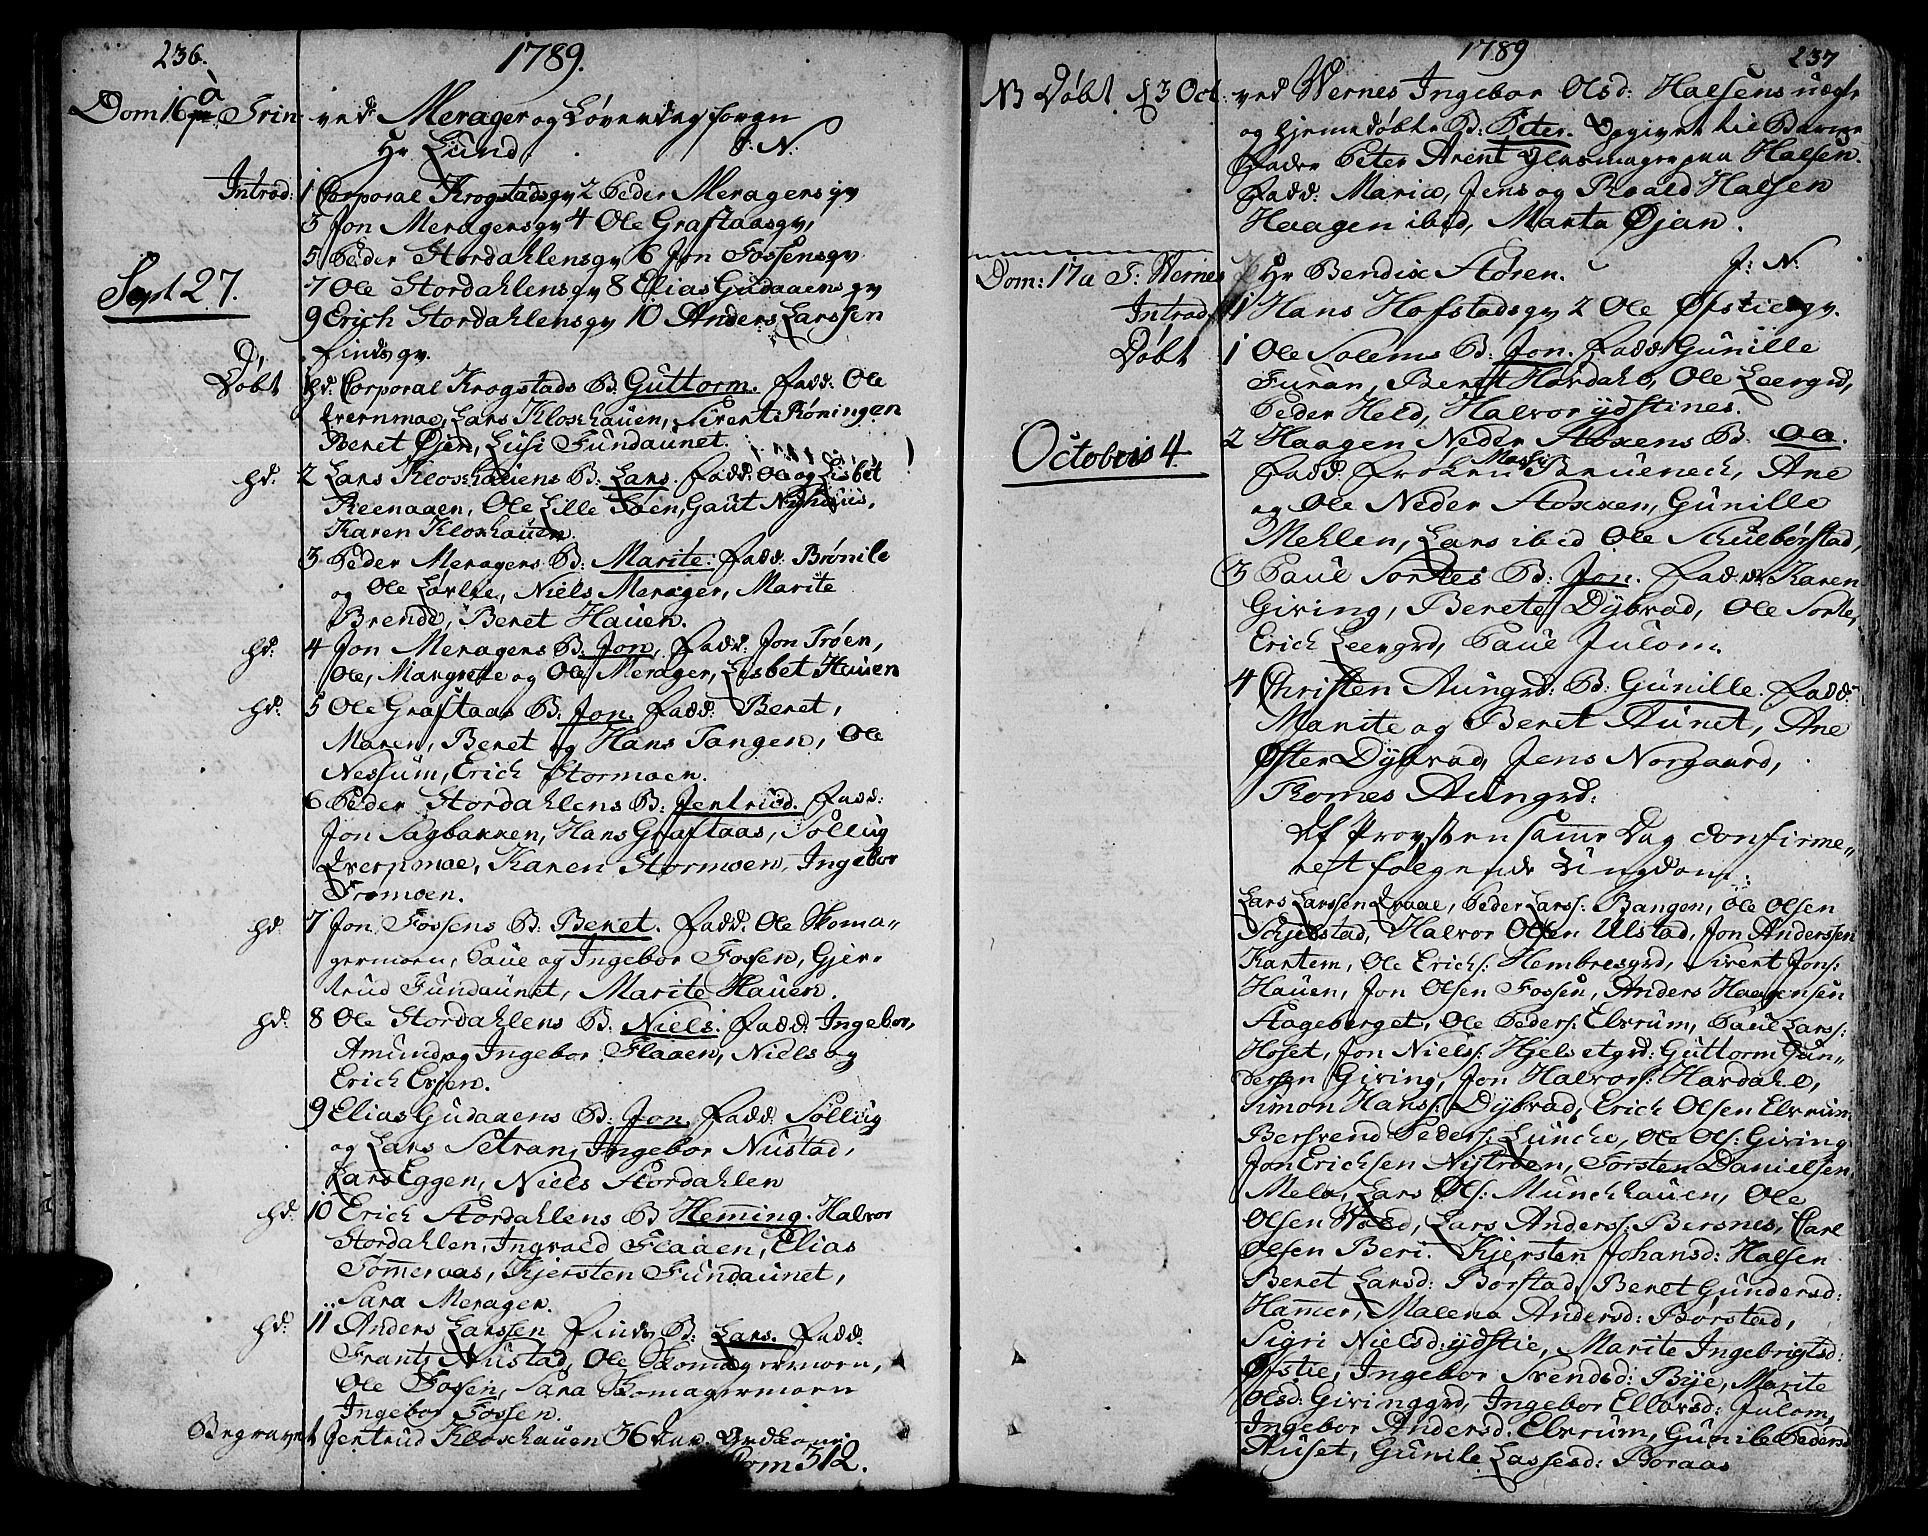 236.
1789.
Dom 16 à Trin: ved Merager og Løverdag forgn
Hr Lund. J: N:
Introd: 1 Corporal Krogstads gv 2 Peder Meragers gv
3 Jon Meragers gv 4 Ole Graftaas gv,
5 Peder Stordahlens gv 6 Jon Fossens gv
Sept 27.
7 Ole Stordahlens gv 8 Elias Gudaaens gv
9 Erich Stordahlens gv 10 Anders Larssen
Finds gv.
Døbt hd. Corporal Krogstads B: Guttorm. Fadd: Ole
Lars Kloxhauen, Sivert Røningen
Beret Øjen, Lusi Fundaunet.
hd: 2 Lars Kloxhauens B: Lars. Fadd: Ole og Lisbet
Reenaaen, Ole Lille Moen, Gaut Nyhuus,
Karen Kloxhauen.
3 Peder Meragers B: Marite: Fadd: Brønile
og Ole Lovlie, Niels Merager, Marite
Brende, Beret Hauen.
hd: 4 Jon Meragers B: Jon. Fadd: Jon Trøen,
Ole, Margrete og Ole Merager, Lisbet Hauen
hd: 5 Ole Graftaas B: Jon. Fadd: Beret,
Maren, Beret og Hans Tangen, Ole
Nessum, Erich Stormoen.
6 Peder Stordahlens B: Jertrud. Fadd:
Jon Sagbakken, Hans Graftaas, Sollug
Karen Stormoen, Ingebor
Tromoen.
hd: 7 Jon Fossens B: Beret. Fadd. Ole Skoma-
germoen, Paul og Ingebor Fossen, Gjer-
trud Fundaunet, Marite Hauen.
hd: 8 Ole Stordahlens B: Niels: Fadd: Ingebor,
Amund og Ingebor Flaaen, Niels og
Erich Evjen.
9 Elias Gudaaens B: Jon. Fadd: Sollug
og Lars Setran, Ingebor Nustad,
Lars Eggen, Niels Stordahlen
hd: 10 Erich Stordahlens B Heming. Halvor
Stordahlen, Ingvald Flaaen, Elias
Tomervas, Kjersten Fundaunet,
Sara Merager.
hd: 11 Anders Larssen Finds B: Lars. Fadd:
Frants Nustad, Ole Skomagermoen,
Ole Fossen, Sara Skomagermoen
Ingebor Fossen.
Begravet Jertrud Kloxhauen 36 Aar
312.
1789
237
NB Døbt d 3 Oct: ved Wernes Ingebor Olsd: Halsens uægte
og hjemedøbte B: Peter. Opgivet til Barne
Fader Peter Arent Glasmager paa Halsen.
Fadd: Maria, Jens og Roald Halsen
Haagen ibid, Marta Øjan.
Dom: 17 a T: Wernes Hr Bendix Støren. J: N:
Introd 1 Hans Hofstads gv 2 Ole Øfstie gv.
Døbt 1 Ole Solems B: Jon. Fadd: Gunille
Furan, Beret Hordahl, Ole Leergrd,
Peder Held, Halvor ydstines.
Octobris 4.
2 Haagen Neder Stoxens B. Ole.
Fadd. Frøken Massi Brueneck, Ane
og Ole Neder Stoxen, Gunille
Mehlen, Lars ibid Ole Skulbørstad,
3 Paul Sortes B: Jon. Fadd: Karen
Giving, Berete Dybvad, Ole Sorte,
Erich Leergrd, Paul Julom.
4 Christen Aungrd: B: Gunille. Fadd:
Marite og Beret Aunet, Ane
Øster Dybvad, Jens Norgaard,
Thomes Aungrd:
Af Provsten samme Dag Confirme-
ret følgende Ungdom:
Lars Larssen Qvaal, Peder Larss: Bangen, Ole Olsen
Schjelstad, Halvor Olsen Ulstad, Jon Anderssen
Kartem, Ole Erichs: Hembresgrd, Sivert Jons:
Hauen, Jon Olsen Fossen, Anders Haagensen
Stageberget, Ole Peders: Elvrum, Paul Larss:
Hoset, Jon Niels: Hjelsetgrd: Guttorm Gun-
dersen Giving, Jon Halvors: Hordahl,
Simon Hans: Dybvad, Erich Olsen Elvrum,
Bersvend Peders: Luncke, Ole Ols: Giving
Jon Erichsen Nystrøen, Torsten Danielsen
Mela, Lars Ols: Munckhauen, Ole
Olsen Wold, Lars Anderss: Bersnes, Carl
Olsen Beri. Kjersten Johansd: Halsen
Beret Larsd: Borstad, Beret Gundersd:
Hammer, Malena Andersd: Børstad,
Sigri Nielsd: ydstie, Marite Ingebrigtsd:
Øfstie, Ingebor Svendsd: Bye, Marite
Olsd: Givinggrd, Ingebor Ellevsd: Julom,
Ingebor Andersd. Elvrum, Gunile Pedersd
Auset, Gunile Lassesd: Boraas